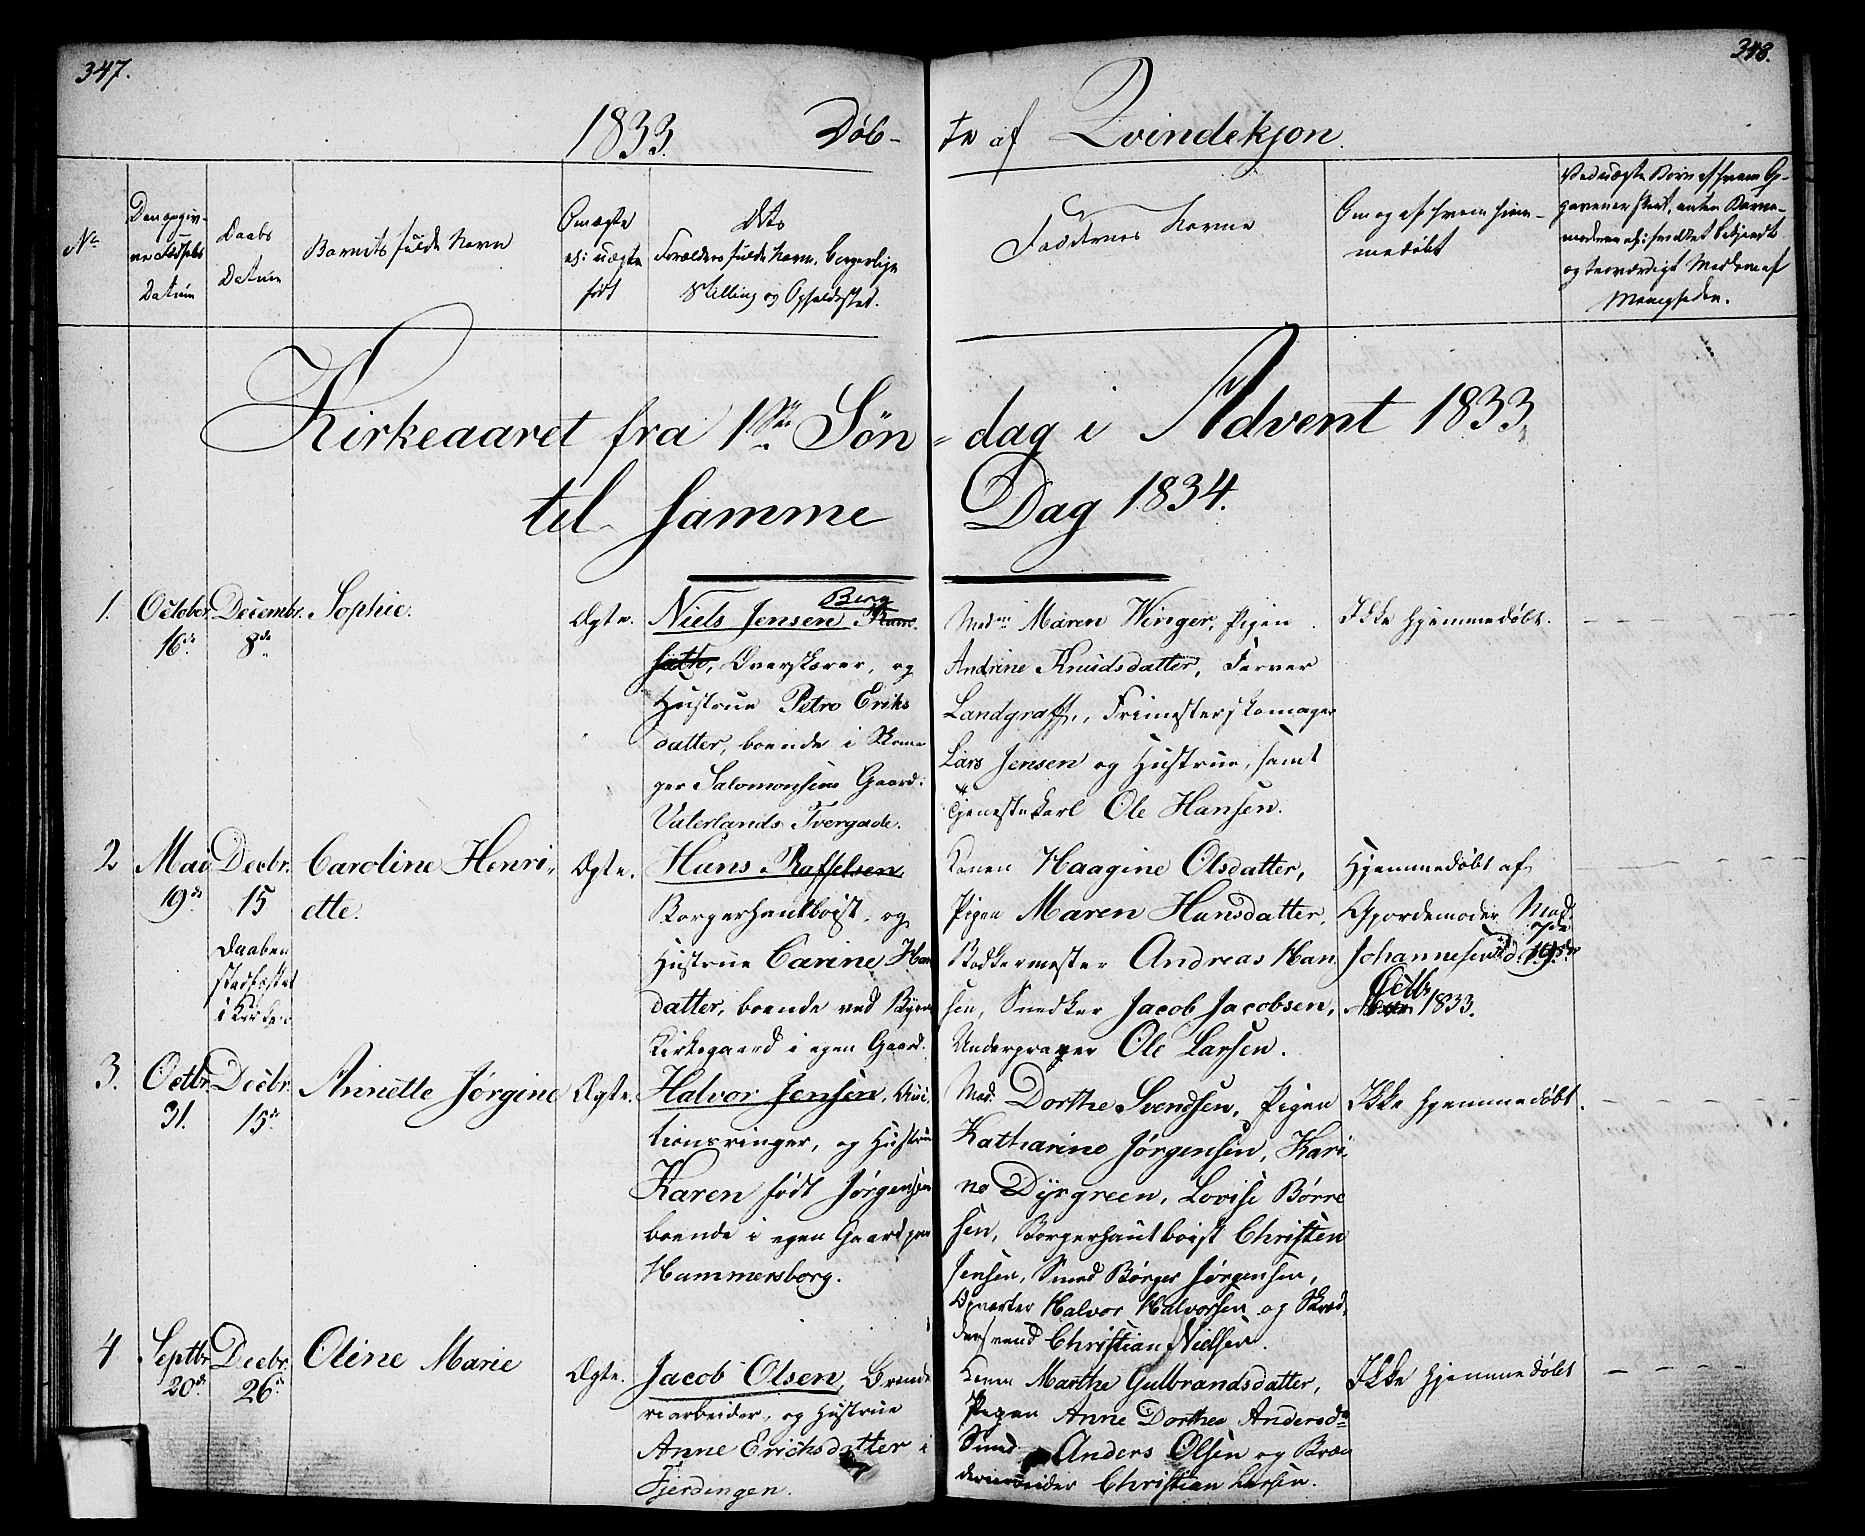 347.
348.
1833. Døb-
te af Qvindekjøn.
No
Den opgiv-
ne Fødsels
Datum
Daabs
Datum
Barnets fulde Navn
Om ægte
el: uægte
født
Dets
Forældres fulde Navn, borgerlige
Stilling og Opholdssted.
Faddernes Navne
Om og af hvem hjem-
medøbt
Ved uægte Børn af hvem
Menigheden.
Kirkeaaret fra 1ste Søn-
dag i Advent 1833.
til samme
Dag 1834.
1.
October
16de
Decembr.
8de
Sophie.
Ægte.
Berg
Niels Jensen
Overskærer, og
Hustrue Petro Eriks
datter, boende i Skoma
ger Salomonsens Gaard.
Vaterlands Tvergade.
Mad. Maren Winger, Pigen
Andrine Knudsdatter, Farver
Landgraff, Frimesterskomager
Lars Jensen og Hustrue, samt
Tjenestekarl Ole Hansen.
Ikke hjemmedøbt.
2
Mai
19de
Decbr.
15
Daaben
stadfæstet
i Kirken
Caroline Henri-
ette.
Ægte.
Hans Raffelsen
Borgerhautboist, og
Hustrue Carine Han
datter, boende ved Byens
Kirkegaard i egen Gaard.
Konen Haagine Olsdatter,
Pigen Maren Hansdatter,
Bødkermester Andreas Han
sen, Snedker Jacob Jacobsen,
Underprager Ole Larsen.
Hjemmedøbt af
Gjordemoder Mad.
Johannesen d. 19de
Octbr
1833.
3.
Octbr.
31.
Decbr.
15de
Annette Jørgine
Ægte.
Halvor Jensen, Auc-
tionsringer, og Hustrue
Karen født Jørgensen
boende i egen Gaard paa
Hammersborg.
Mad. Dorthe Svendsen, Pigen
Katharine Jørgensen, Kari
ne Dyrgreen, Lovise Børre
sen, Borgerhautboist Christen
Jensen, Smed Børger Jørgensen,
Opvarter Halvor Halvorsen og Skræd-
dersvend Christian Nielsen.
Ikke hjemmedøbt.
4
Septbr
20de
Decbr.
26de
Oline Marie
Ægte.
Jacob Olsen, Brænde
riarbeider, og Hustrue
Anne Erichsdatter i
Fjerdingen.
Konen Marthe Gulbrandsdatter,
Pigen Anne Dorthea Andersdr
Smed Anders Olsen og Bræn
deriarbeider Christian Larsen.
Ikke hjemmedøbt